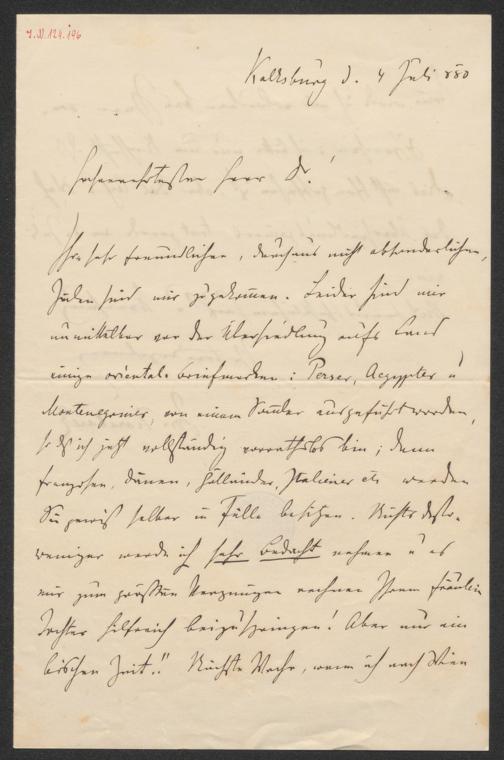 I.N. 124.196
Kalksburg d. 4 Juli 880
Hochverehrtester Herr Dr!
Ihre sehr freundlichen, durchaus nicht absonderlichen,
Zeilen sind mir zugekommen. Leider sind mir
unmittelbar vor der Übersiedlung aufs Land
einige oriental. Briefmarken: Perser, Aegypter u
Montenegriner, von einem Sammler ausgeführt worden,
so dß ich jetzt vollständig vorrathslos bin; denn
Franzosen, Dänen, Holländer, Italiener etc werden
Sie gewiß selber in Fülle besitzen. Nichts desto-
weniger werde ich sehr Bedacht nehmen u es
mir zum größten Vergnügen rechnen Ihrem Fräulein
Tochter hilfreich beizuspringen! Aber nur ein
bischen Zeit!! Nächste Woche, wenn ich nach Wien